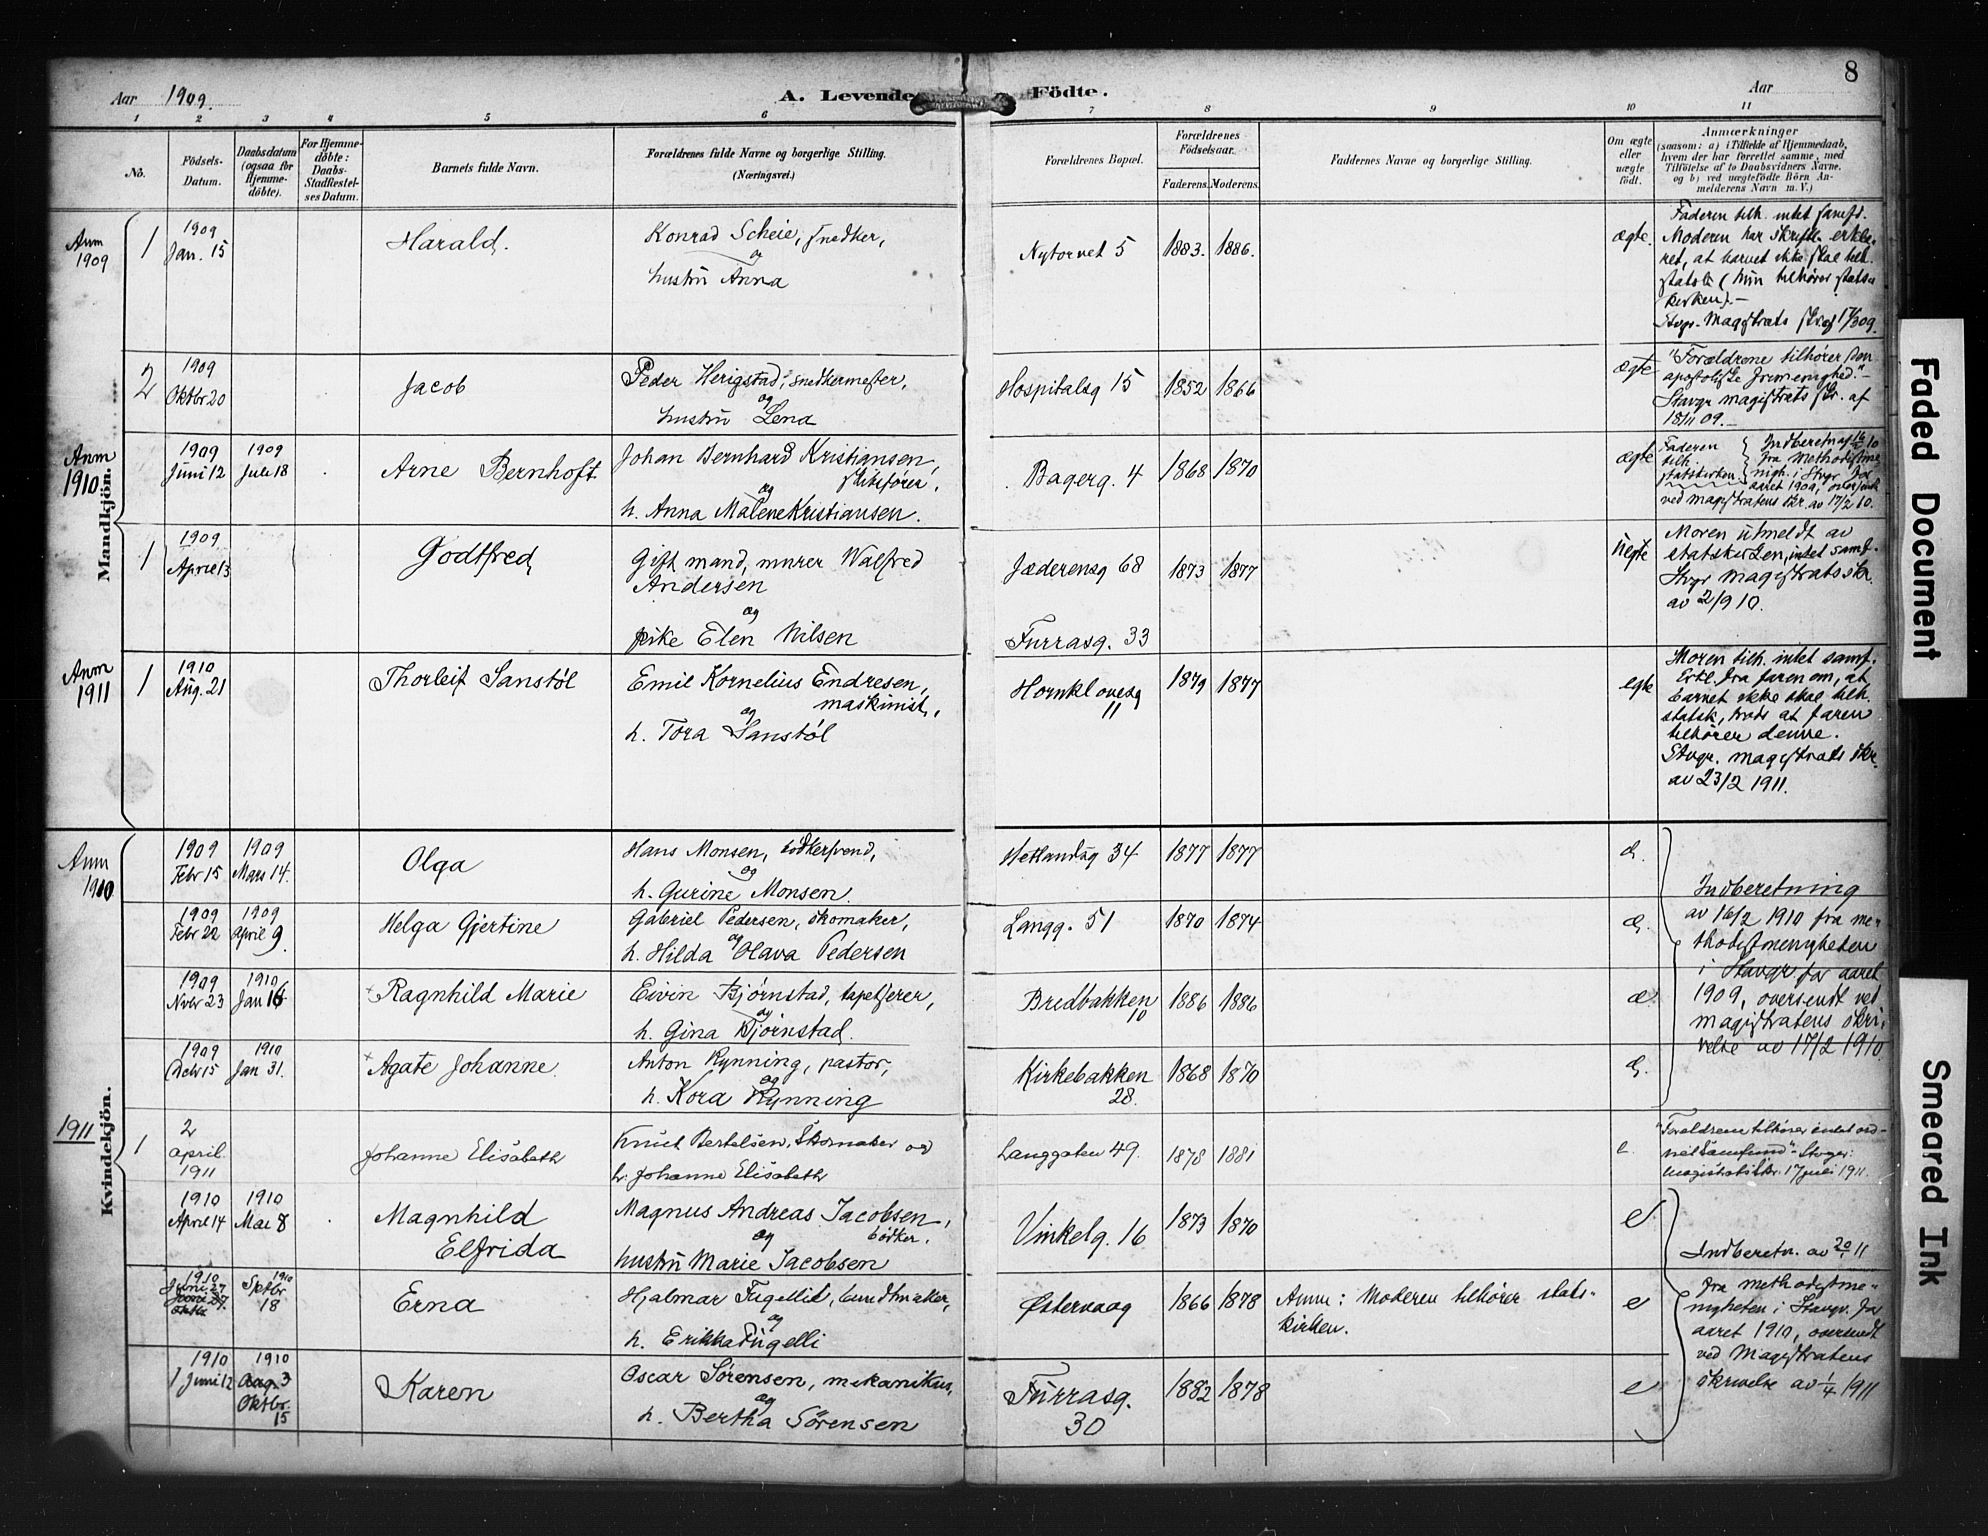 8
Aar 1909.
A. Levende Födte.
Aar
1 2 3 4 5 6 7 8 9 10 11
No.
Födsels-Datum.
Daabsdatum (ogsaa for Hjemmedöbte).
For Hjemmedöbte: Daabs-Stadfæstelses Datum.
Barnets fulde Navn.
Forældrenes fulde Navne og borgerlige Stilling. (Næringsvei.)
Forældrenes Bopæl.
Forældrenes Födselsaar.
Faderens. Moderens.
Faddernes Navne og borgerlige Stilling.
Om ægte eller uægte födt.
Anmærkninger
(saasom: a) i Tilfælde af Hjemmedaab, hvem der har forrettet samme, med Tilföielse af to Daabsvidners Navne, og b) ved uægtefödte Börn Anmelderens Navn m. V.)
Mandkjön.
Anm 1909
1 1909 Jan. 15 Harald.
Konrad Scheie, snedker,
og
hustru Anna
Nytorvet 5 1883. 1886. ægte.
Faderen tilh. intet samfd.
Moderen har skriftl. erklæ-
ret, at barnet ikke skal tilh.
statsk (hun tilhører stats-
kirken).-
Stvgr. Magistrats skr. af 17/3 09.
2 1909 Oktbr 20 Jacob
Peder Herigstad, snedkermester,
og
hustru Lena
Hospitalsg 15 1852 1866 ægte
"Forældrene tilhører den
apostoliske frimenighed."-
Stavgr magistrats skr. af
18/11 09.-
Anm 1910
1909 Juni 12 1909 Juli 18 Arne Bernhoft
Johan Bernhard Kristiansen,
skibsfører,
og
h. Anna Malene Kristiansen.
Bagerg. 4 1868 1870 ægte
Faderen tilh. statskirken.
Indberetn af 16/2 10
fra Methodistme-
nigh. i Stvgr for
aaret 1909, oversendt
ved magistratens skr. av 17/2 10.
1 1909 April 13 Godtfred,
Gift mand, murer Walfred
Andersen
og
pike Elen Nilsen
Jæderensg 68 1873 1877 uegte
Furrasg. 33
Moren utmeldt av
statskirken, intet samf.
Stvgr magistrats skr.
av 2/9 10.
Anm 1911
1 1910 Aug. 21 Thorleif Sanstøl
Emil Kornelius Endresen,
maskinist,
og
h. Tora Sanstøl
Hornklovesg 11 1879 1877 egte
Moren tilh. intet samf.
Erkl. fra faren om, at
barnet ikke skal tilh.
statsk, trods at faren
tilhører denne.
Stvgr. magistrats skr.
av 23/2 1911.
Kvindekjön.
Anm 1910
1909 Febr 15 1909 Mars 14. Olga
Hans Monsen, bødkersvend,
og
h. Gurine Monsen.
Hetlandsg 34 1877 1877 æ.
1909 Febr 22 1909 April 9. Helga Gjertine
Gabriel Pedersen, skomaker,
og
h. Hilda Olava Pedersen
Langg. 51 1870 1874 æ.
1909 Novbr 23 1910 Jan 16 Ragnhild Marie
Eivin Bjørnstad, tapetserer,
og
h. Gina Bjørnstad.
Bredbakken 10 1886 1886 æ
1909 Decbr 15 1910 Jan 31. Agate Johanne
Anton Rynning, pastor,
og
h. Kora Rynning
Kirkebakken 28. 1868 1870 æ.
Indberetning
av 16/2 1910 fra me-
thodistmenigheten
i Stavgr for aaret
1909, oversendt ved
magistratens skri-
velse av 17/2 1910.
1911
1 2 april 1911 Johanne Elisabeth
Knut Bertelsen, Skomaker og
h. Johanne Elisabeth
Langgaten 49. 1878 1881 e.
"Foreldrene tilhører intet ord-
net samfund" Stvger.
magistrats skr. 17 juli 1911.
1910 April 14 1910 Mai 8 Magnhild Elfrida
Magnus Andreas Jacobsen,
bødker,
og
hustru Marie Jacobsen
Vinkelg. 16 1873 1870 e
1910 Juni 27 1910 Septbr 18 Erna
Hjalmar Fugelli, bundtmaker,
og
h. Erikka Fugelli
Østervaag 1866 1878
Anm: Moderen tilhører stats-
kirken.
e
1910 Juni 12 1910 Aug. 3 Oktbr. 15 Karen
Oscar Sørensen, mekanikus,
og
h. Bertha Sørensen
Furrasg. 30 1882 1878 e
Indberetn. av 20/1 11
fra methodistme-
nigheten i Stavgr. for
aaret 1910, oversendt
ved Magistratens
skrivelse av 1/4 1911
Faded Document
Smeared Ink